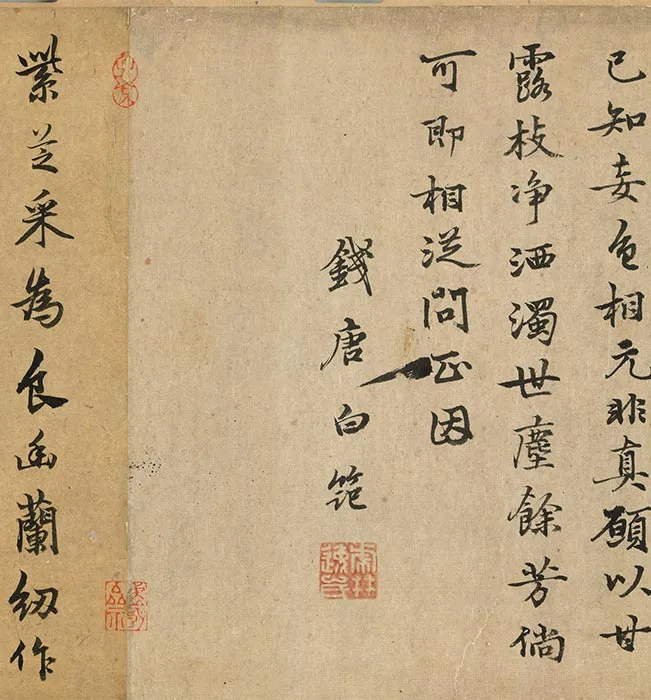 已知妄色相元非真願以甘
露枝净洒濁世塵餘芳倘
可即相從問正因
錢唐白
紫芝采為食幽蘭紉作